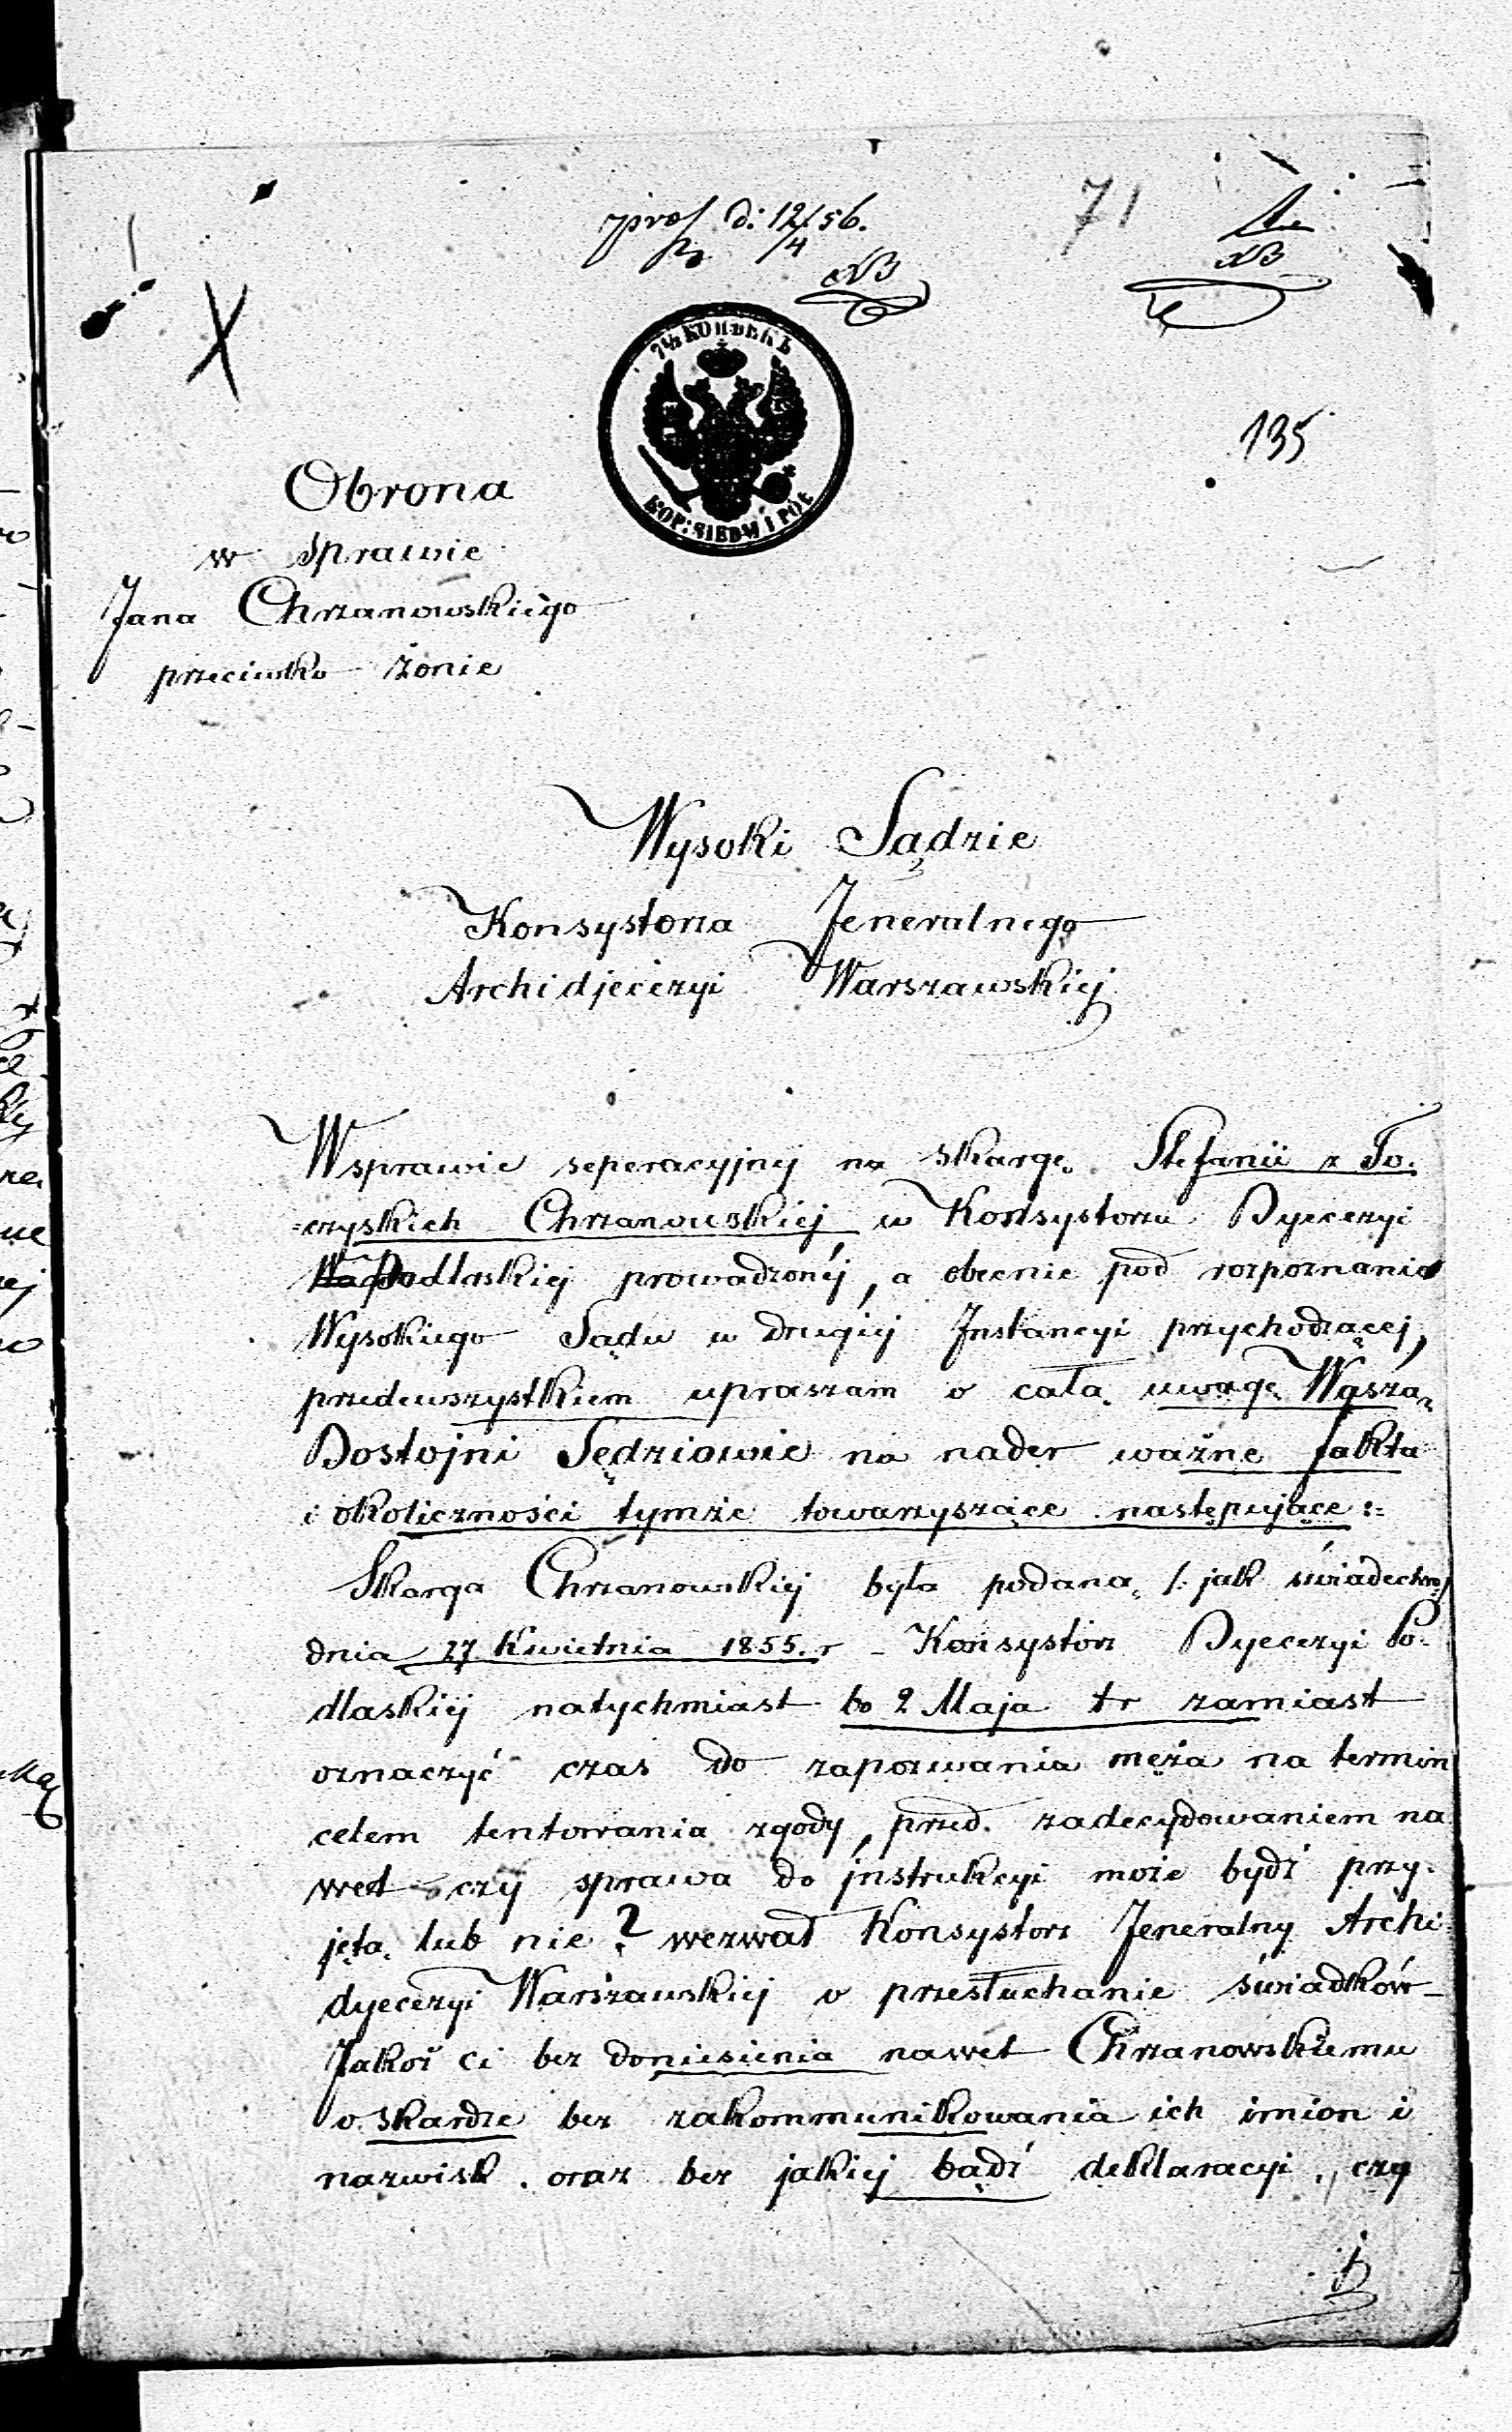 d: 12/4 56.
71
135
7½ КОПѢЕКЪ
KOP: SIEDM I PÓŁ
Obrona
w sprawie
Jana Chrzanowskiégo
przeciwko żonie
Wysoki Sądzie
Konsystorza Jeneralnego
Archidjecezyi Warszawskiej
Wsprawie seperacyjnej na skargę Stefanii z To-
=czyskich Chrzanowskiej w Konsystorzu Dyecezyi
Podlaskiej prowadzonéj, a obecnie pod rozpoznanie
Wysokiego Sądu w drugiej Instancyi przychodzącej,
przedewszystkiem upraszam o całą uwagę Waszą
Dostojni Sędziowie na nader ważne fakta
i okoliczności tymże towarzyszące następujące:=
Skarga Chrzanowskiej była podaną /: jak świadectwo/
dnia 27 Kwietnia 1855. r - Konsystorz Dyecezyi Po-
dlaskiej natychmiast bo 2 Maja tr zamiast
oznaczyć czas do zapozwania męża na termin
celem tentowania zgody, przed. zadecydowaniem na
wet czy sprawa do instrukcyi może bydź przy-
jętą lub nie? wezwał Konsystorz Jeneralny Archi-
dyecezyi Warszawskiej o przesłuchanie świadków -
Jakoż ci bez doniesienia nawet Chrzanowskiemu
o skardze bez zakommunikowania ich imion i
nazwisk. oraz bez jakiej bądź deklaracyi, czy